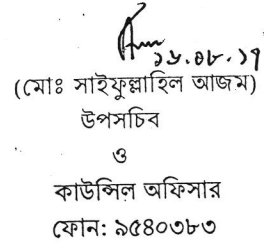 ১৬.০৮.১৭
(মোঃ সাইফুল্লাহিল আজম)
উপসচিব
ও
কাউন্সিল অফিসার
ফোন: ৯৫৪০৩৮৩